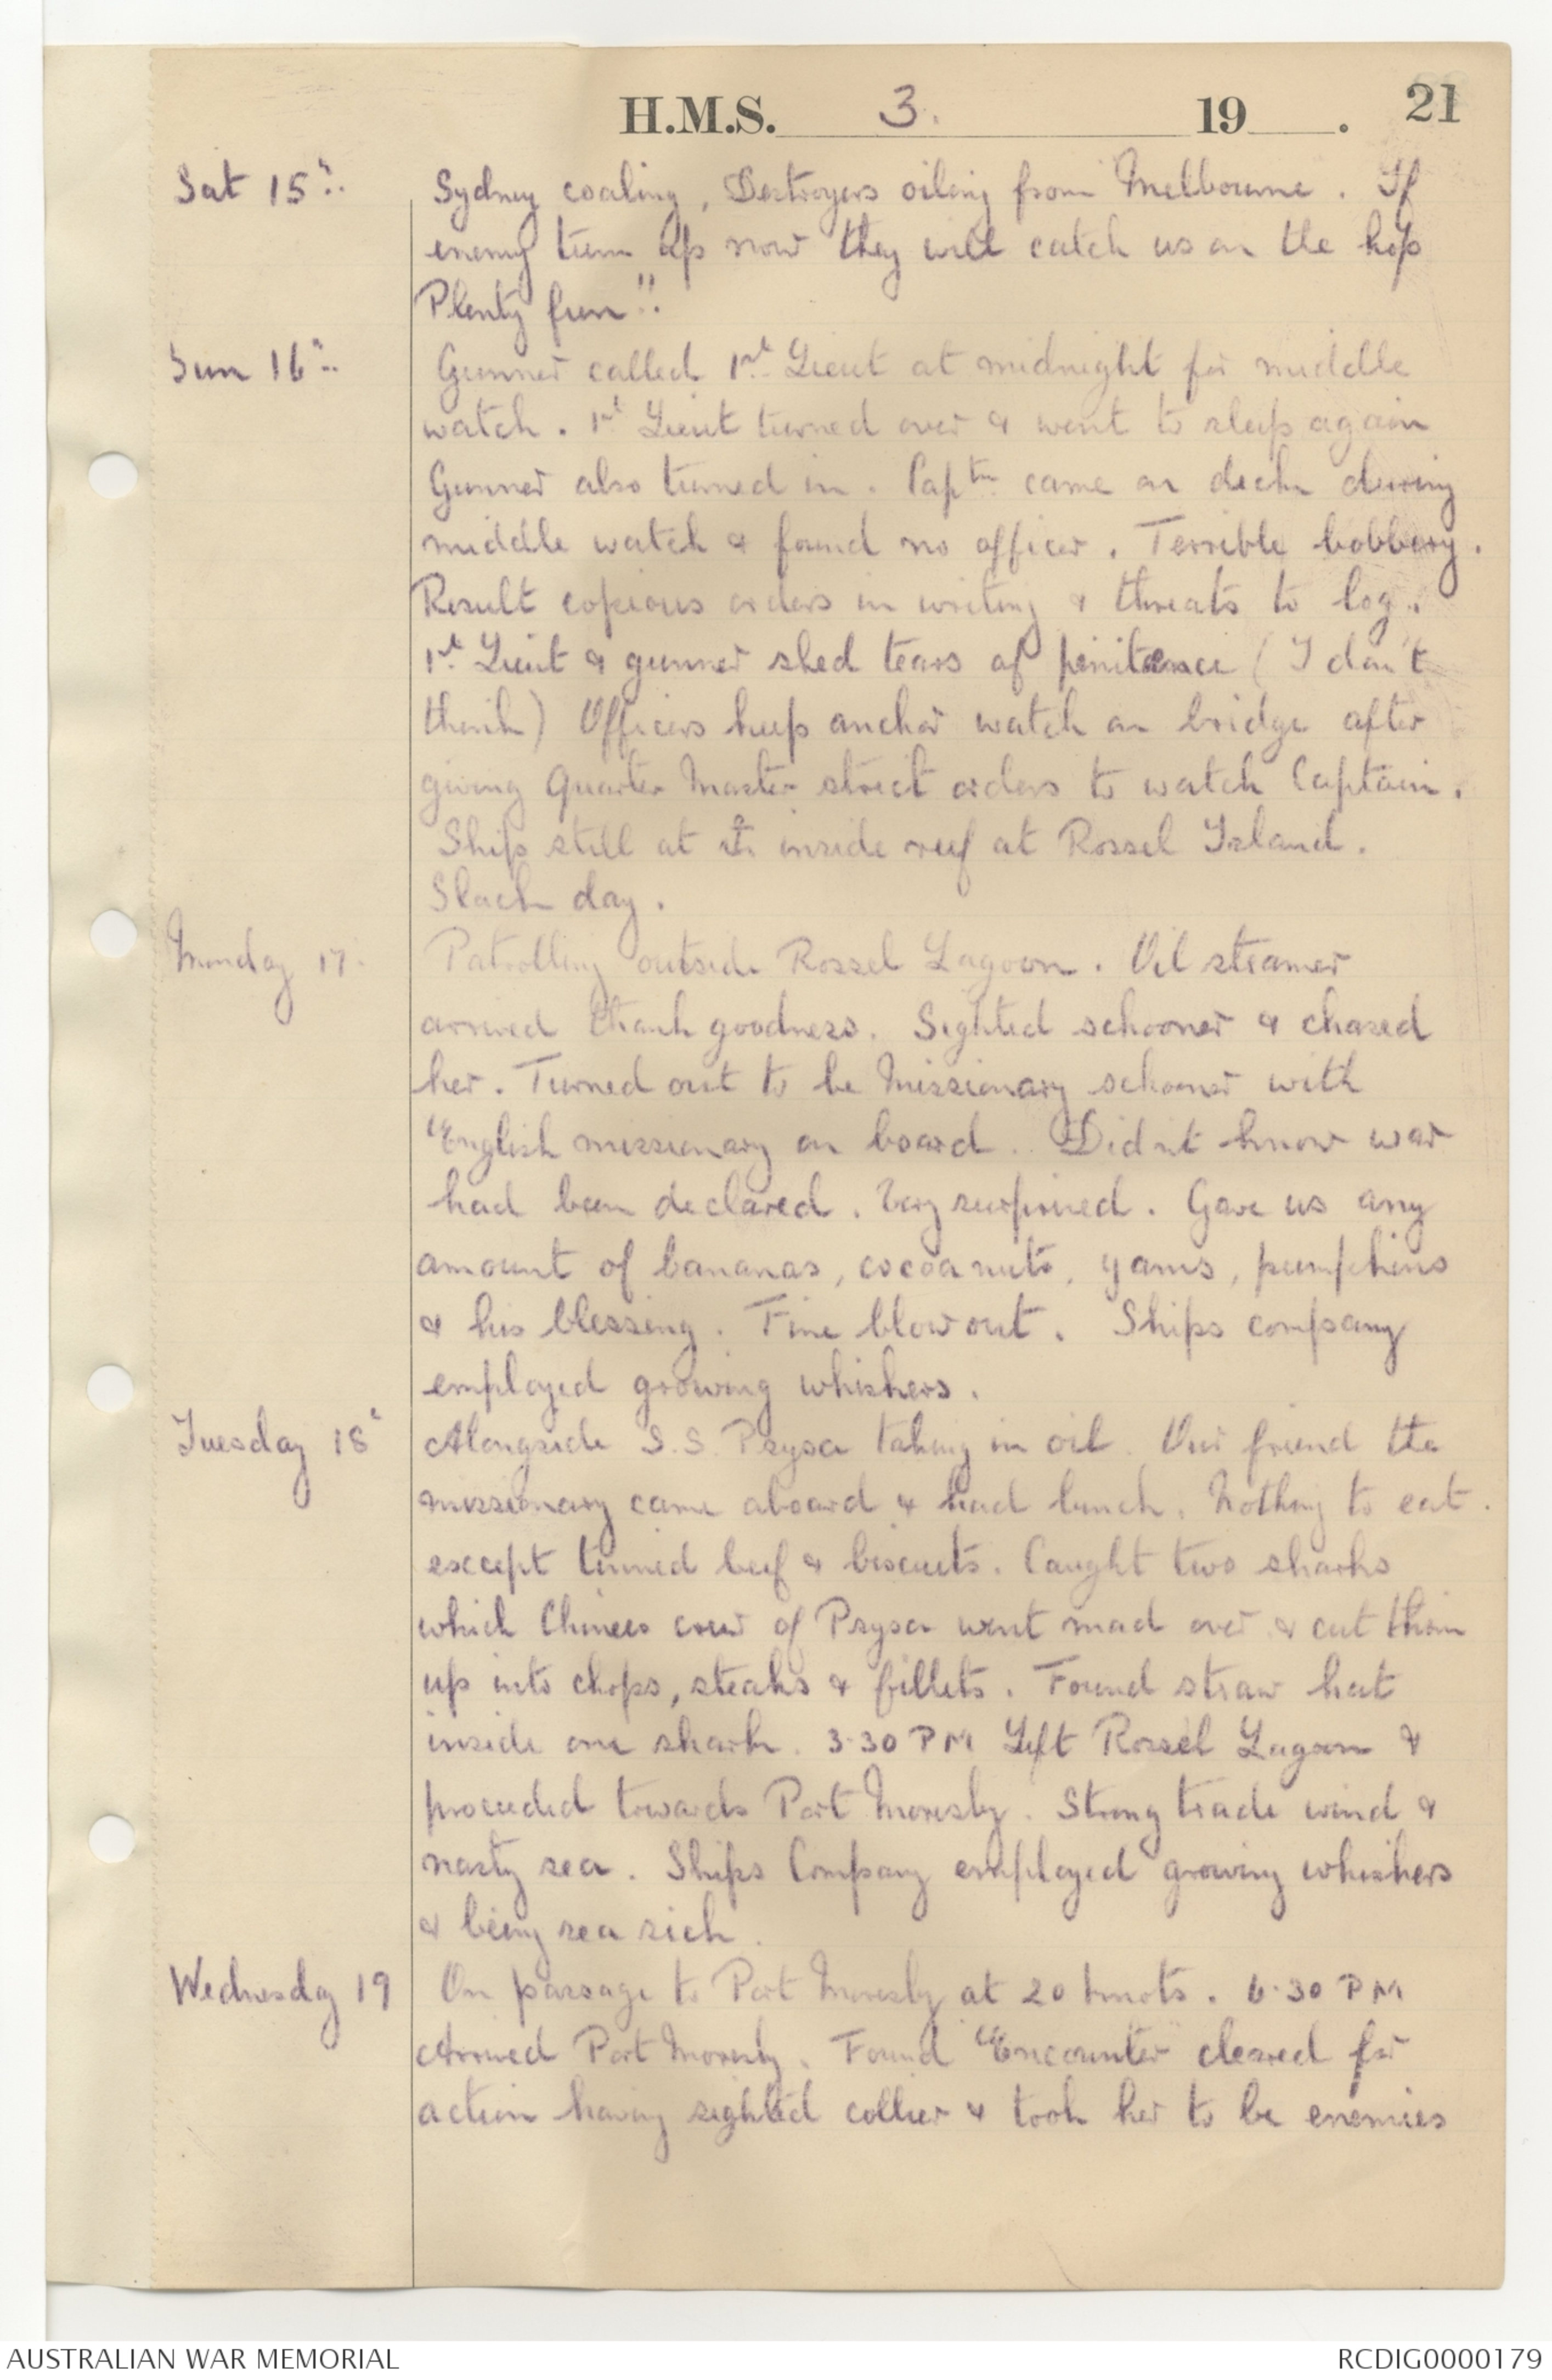 H.M.S. 3. 19 . 21
Sat 15th Sydney coaling, Destroyers oiling from Melbourne. If
enemy turn up now they will catch us on the hop
Plenty fun".
Sun 16th Gunner called 1st Lieut at midnight for middle
watch. 1st Lieut turned over & went to sleep again
Gunner also turned in. Captn came on deck during
middle watch & found no officer. Terrible bobbery.
Result copious orders in writing & threats to log.
1st Lieut & gunner shed tears of penitence (I don't
think) Officers keep anchor watch on bridge after
giving Quarter Master strict orders to watch Captain.
Ship still at ⚓ inside reef at Rossel Island.
Slack day.
Monday 17. Patrolling outside Rossel Lagoon. Oil steamer
arrived thank goodness. Sighted schooner & chased
her. Turned out to be Missionary schooner with
English missionary on board. Didn't know war
had been declared. Very surprised. Gave us any
amount of bananas, cocoanuts, yams, pumpkins
& his blessing. Fine blow out. Ships company
employed growing whiskers.
Tuesday 18th Alongside S.S. Prysa taking in oil. Our friend the
missionary came aboard & had lunch. Nothing to eat.
except tinned beef & biscuits. Caught two sharks
which Chinees crew of Prysa went mad over & cut them
up into chops, steaks & fillets. Found straw hat
inside one shark. 3.30 PM Left Rossel Lagoon &
proceeded towards Port Moresby. Strong trade wind &
nasty sea. Ships Company employed growing whiskers
& being sea sick.
Wednesday 19 On passage to Port Moresby at 20 knots. 6.30 PM
Arrived Port Moresby. Found "Encounter" cleared for
action having sighted collier & took her to be enemies
AUSTRALIAN WAR MEMORIAL
RCDIG0000179